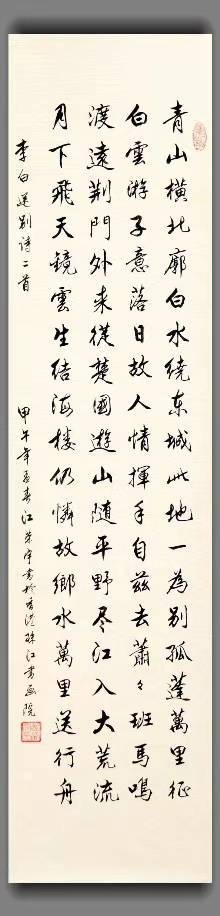 青山橫北廓白水绕东城此地一為别孤蓬萬里征
白雲游子意落日故人情揮手自兹去蕭々班馬鳴
渡遠荆門外来從楚國遊山随平野尽江入大荒流
月下飛天鏡雲生结海楼仍憐故鄉水萬里送行舟
李白送别诗二首
甲午年孟春江荣宇書於香港珠江書画院